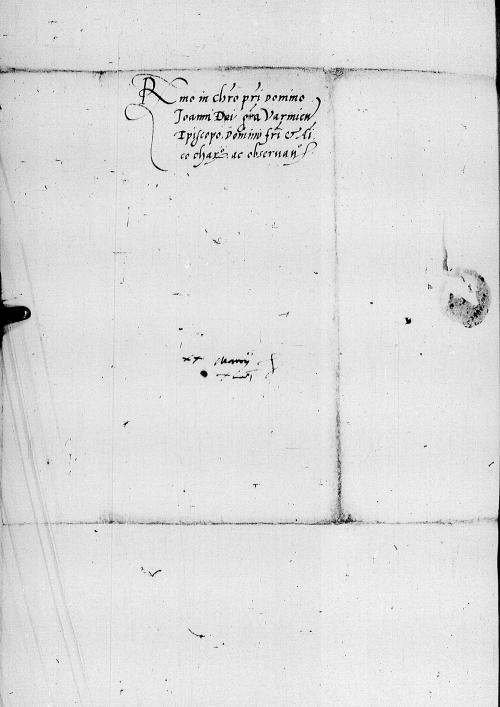 Rmo in chro pri domino
Joanni Dei gra Varmien
Episcopo. Domino fri & Ami
co chariss ac observan
xx Martij